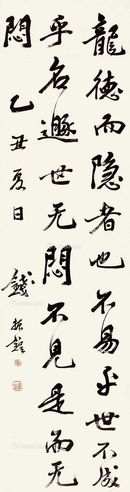 龍德而隐者也不易乎世不成
乎名遯世无悶不見是而无
悶
乙丑夏日
錢振鍠